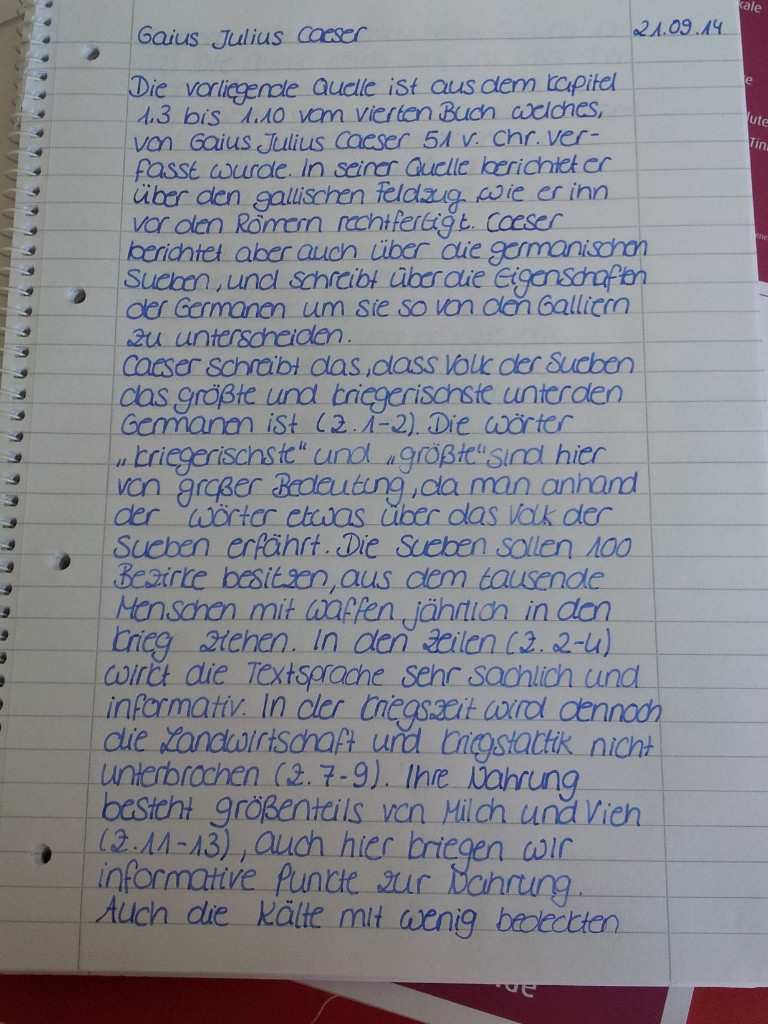 Gaius Julius Caeser 21.09.14
Die vorliegende Quelle ist aus dem Kapitel
1.3 bis 1.10 vom vierten Buch welches,
von Gaius Julius Caeser 51 v. Chr. ver-
fasst wurde. In seiner Quelle berichtet er
über den gallischen Feldzug wie er inn
vor den Römern rechtfertigt. Caeser
berichtet aber auch über die germanischen
Sueben, und schreibt über die Eigenschaften
der Germanen um sie so von den Galliern
zu unterscheiden.
Caeser schreibt das, dass Volk der Sueben
das größte und kriegerischste unter den
Germanen ist (Z. 1-2). Die wörter
„kriegerischste" und „größte" sind hier
von großer Bedeutung, da man anhand
der wörter etwas über das Volk der
Sueben erfährt. Die Sueben sollen 100
Bezirke besitzen, aus dem tausende
Menschen mit waffen jährlich in den
krieg ziehen. In den zeilen (Z. 2-4)
wirkt die Textsprache sehr sachlich und
informativ. In der kriegszeit wird dennoch
die Landwirtschaft und kriegstaktik nicht
unterbrochen (Z. 7-9). Ihre Nahrung
besteht größenteils von Milch und Vieh
(Z. 11-13), auch hier kriegen wir
informative Punkte zur Nahrung.
Auch die Kälte mit wenig bedeckten
kale
e
lute
Tin
ene